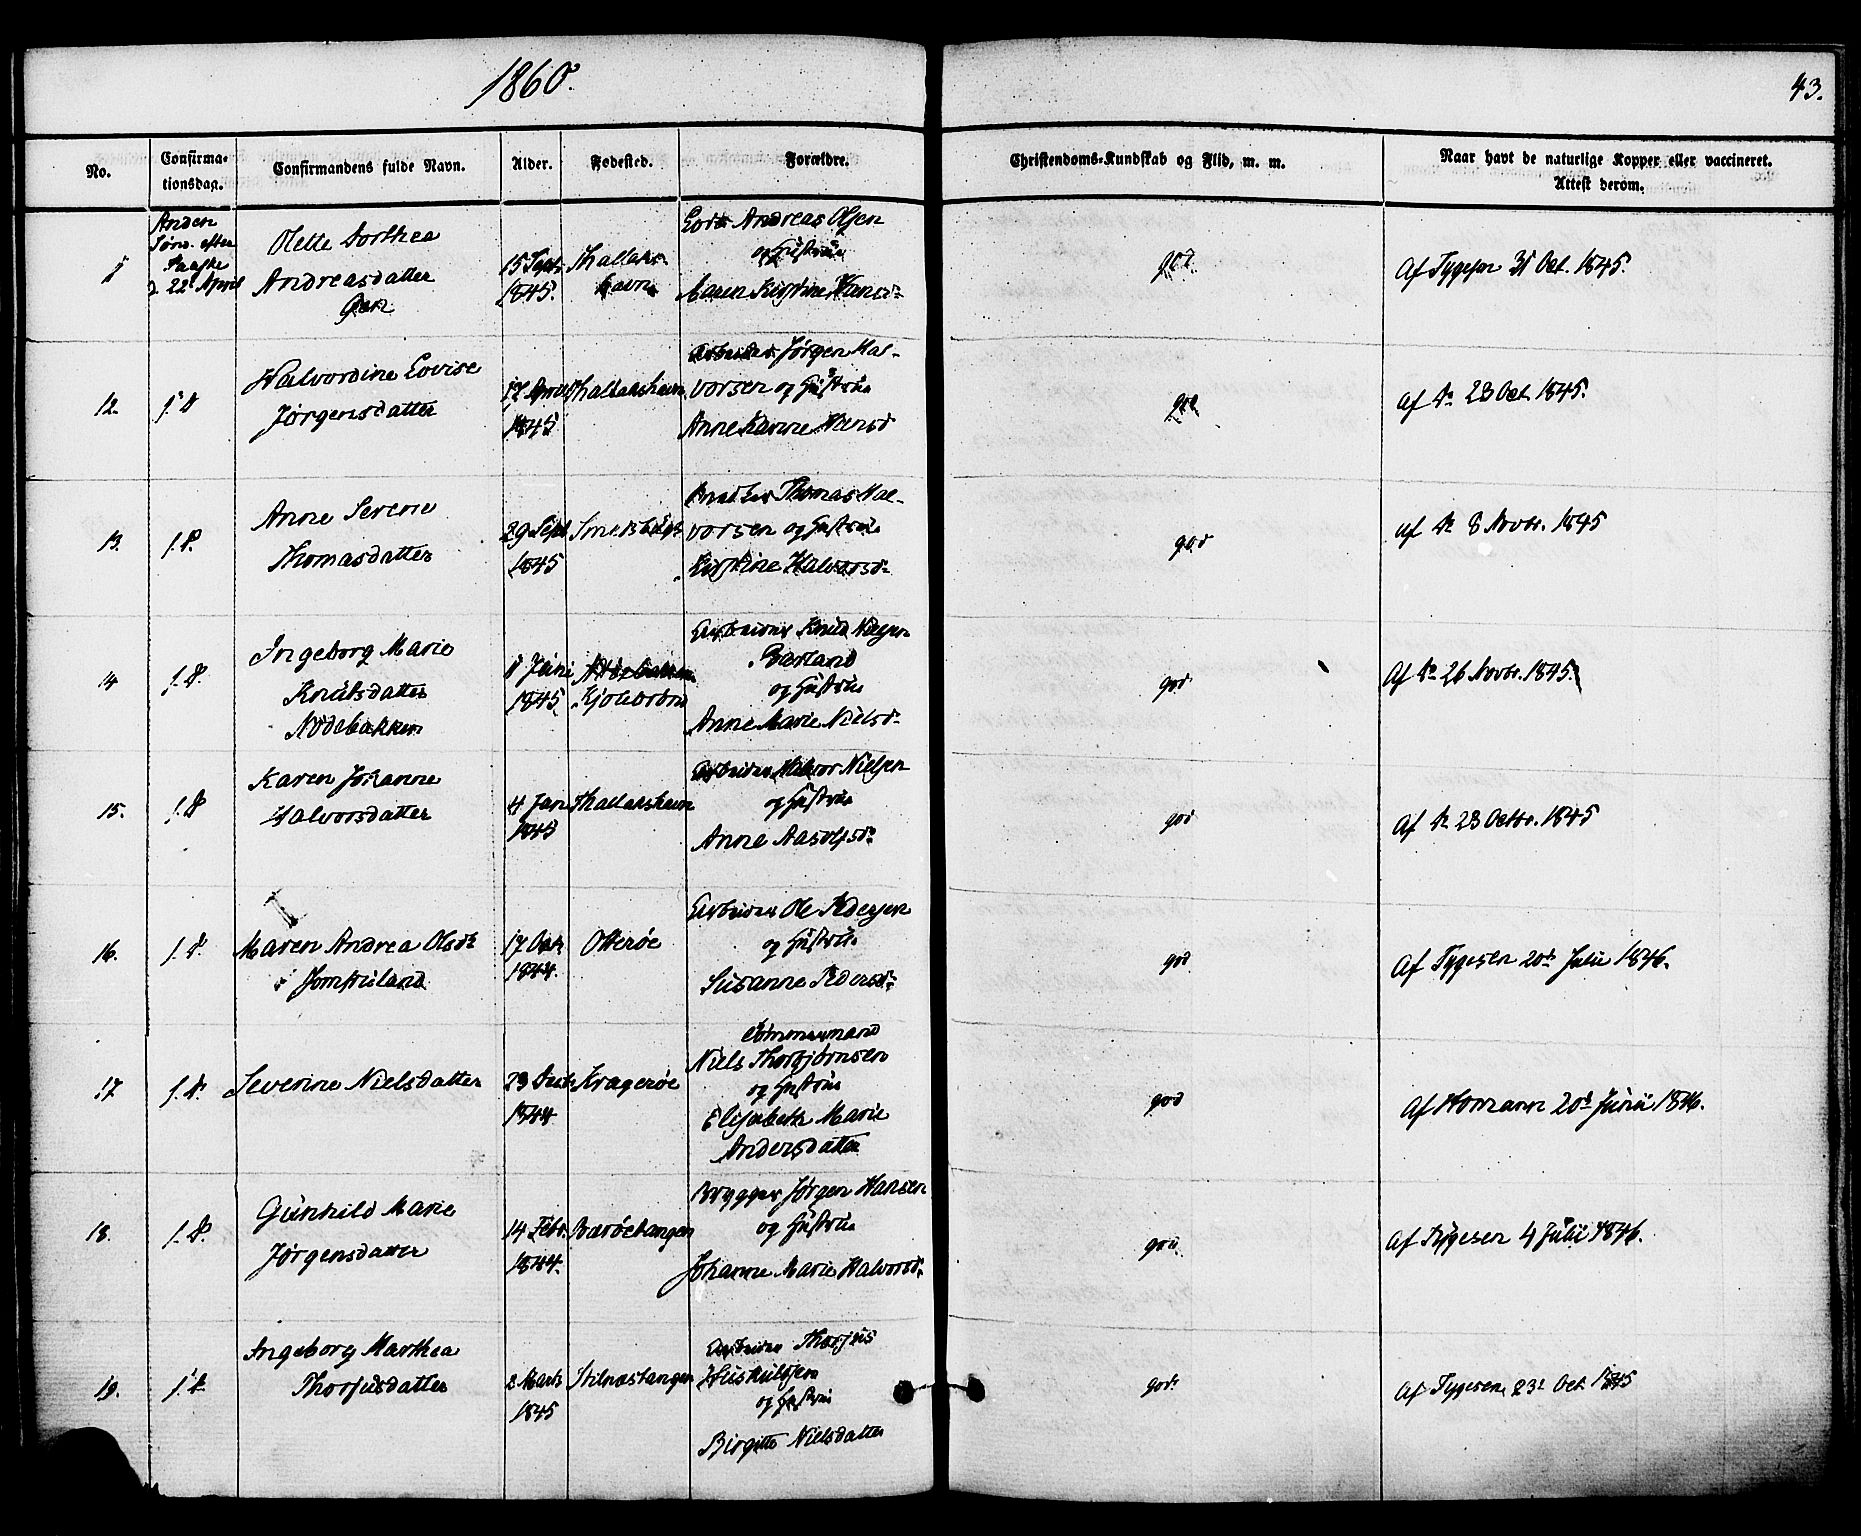 1860.
43.
No.
Confirma-
tionsdag.
Confirmandens fulde Navn.
Alder.
Fødested.
Forældre.
Christendoms-Kundskab og Flid, m. m.
Naar havt de naturlige Kopper eller vaccineret.
Attest derom.
Anden
Sønd. efter
Paaske
22 April
Olette Dorthea
Andreasdatter
15 Sept.
1845.
havn
Andreas Olsen
og Hustrue
Maren Kirstine Hansd.
god
Af Tygesen 31 Oct. 1845.
12.
f. D
Halvordine Lovise
Jørgensdatter
17 April
1845
Thallakshavn
Arbeider Jørgen Hal-
vorsen og Hustrue
Anne Karine Hansd
god
Af Do 23 Oct. 1845.
13.
f. D.
Anne Serene
Thomasdatter
29 Sept
1845
Thomas Hal-
vorsen og Hustrue
Kirstine Halvorsd.
god
af Do 8 Novbr. 1845
14
f. D.
Ingeborg Marie
Knudsdatter
Nødebakken
Juni
1845
Kjølebrønd
Arbeider Knud Nielsen
Barland
og Hustrue
Anne Marie Nielsd.
god
Af Do 26 Novbr. 1845.
15.
f. D
Karen Johanne
Halvorsdatter
4 Jan
1845
Thallakshavn
Arbeider Halvor Nielsen
og Hustrue
Anne Aasolfsd.
god
Af Do 23 Octbr. 1845
16.
f. D.
Maren Andrea Olsdr
Jomfruland
17 Octr.
1844.
Otterøe
Arbeider Ole Pedersen
og Hustrue
Susanne Pedersd.
god
Af Tygesen 20de Julii 1846.
17
f. D.
Severine Nielsdatter
23
1844
Kragerøe
Tømmermand
Niels Thorbjørnsen
og Hustrue
Elisabeth Marie
Andersdatter
god
Af Homann 20de Junii 1846.
18.
f. D.
Gunhild Marie
Jørgensdatter
14 Febr.
1844.
Barøetangen
Brygger Jørgen Hansen
og Hustrue
Johanne Marie Halvorsd.
god
Af Tygesen 4 Julii 1846.
19.
f. D
Ingeborg Marthea
Thorjusdatter
2 Marts
1845
Stilnæstangen
Arbeider Thorjus
og Hustrue
Birgitte Nielsdatter
god
Af Tygesen 23 Oct 1845